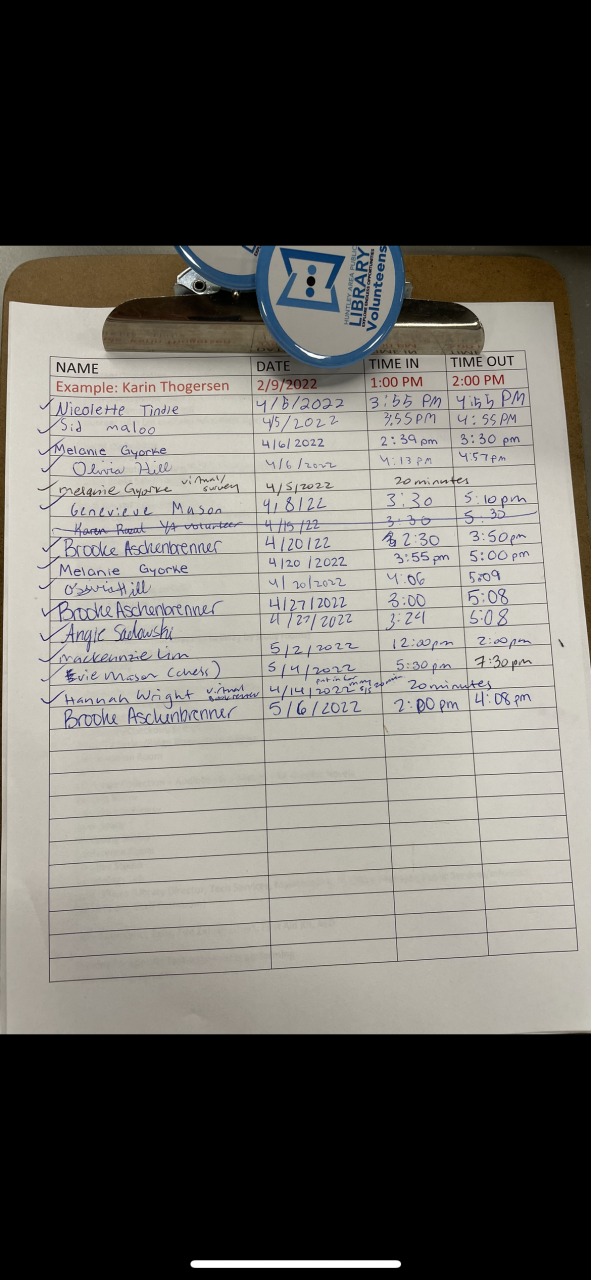 HUNTLEY AREA PUBLIC
LIBRARY
Volunteens
NAME DATE TIME IN TIME OUT
Example: Karin Thogersen 2/9/2022 1:00 PM 2:00 PM
Nicolette Tindle 4/5/2022 3:55 PM 4:55 PM
Sid maloo 4/5/2022 3:55PM 4:55PM
Melanie Gyorke 4/6/2022 2:39pm 3:30 pm
Olivia Hill 4/6/2022 4:13 PM 4:57PM
melanie Gyorke virtual/ survey 4/5/2022 20 minutes
Genevieve Mason 4/8/22 3:30 5:10pm
Karen YA Volunteer 4/19/22 3:30 5:30
Brooke Aschenbrenner 4/20/22 2:30 3:50pm
Melanie Gyorke 4/20/2022 3:55pm 5:00pm
Olivia Hill 4/20/2022 4:06 5:09
Brooke Aschenbrenner 4/27/2022 3:00 5:08
Angie Sadowski 4/27/2022 3:24 5:08
mackennzie Lim 5/2/2022 12:00pm 2:00pm
Evie Mason (chess) 5/4/2022 5:30pm 7:30pm
Hannah Wright virtual 4/14/2022 put in 5/5 20 minutes
Brooke Aschenbrenner 5/6/2022 2:00pm 4:08pm